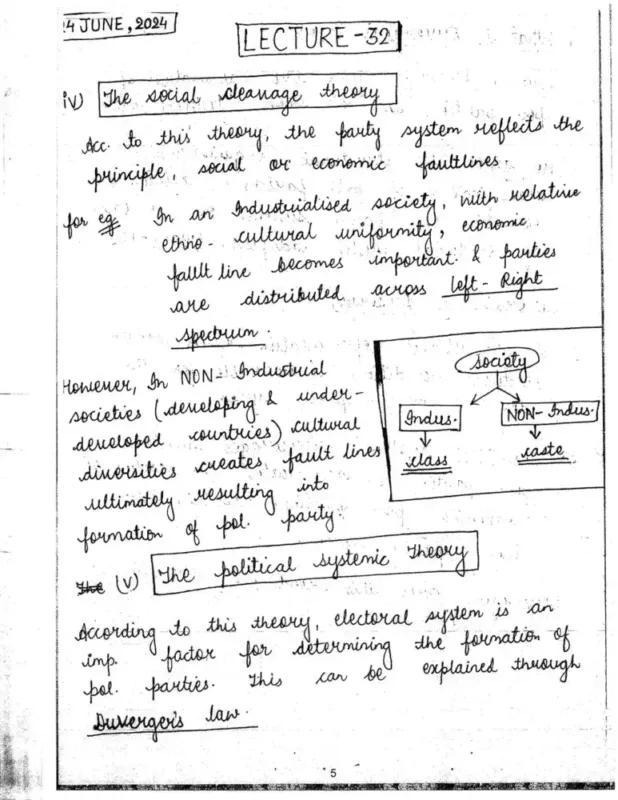 14 JUNE, 2024
LECTURE -32
iv) The social cleavage theory
Acc. to this theory, the party system reflects the
principle, social or economic faultlines.
for eg In an Industrialised society, with relative
ethno - cultural uniformity, economic
fault line becomes important & parties
are distributed across Left - Right
spectrum.
However, In NON- Industrial
societies (developing & under-
developed countries) cultural
diversities creates fault lines
ultimately resulting into
formation of pol. party.
society
Indus. NON- Indus.
class caste
The (v) The political systemic Theory
According to this theory, electoral system is an
imp. factor for determining the formation of
pol. parties. This can be explained through
Duverger's law.
5